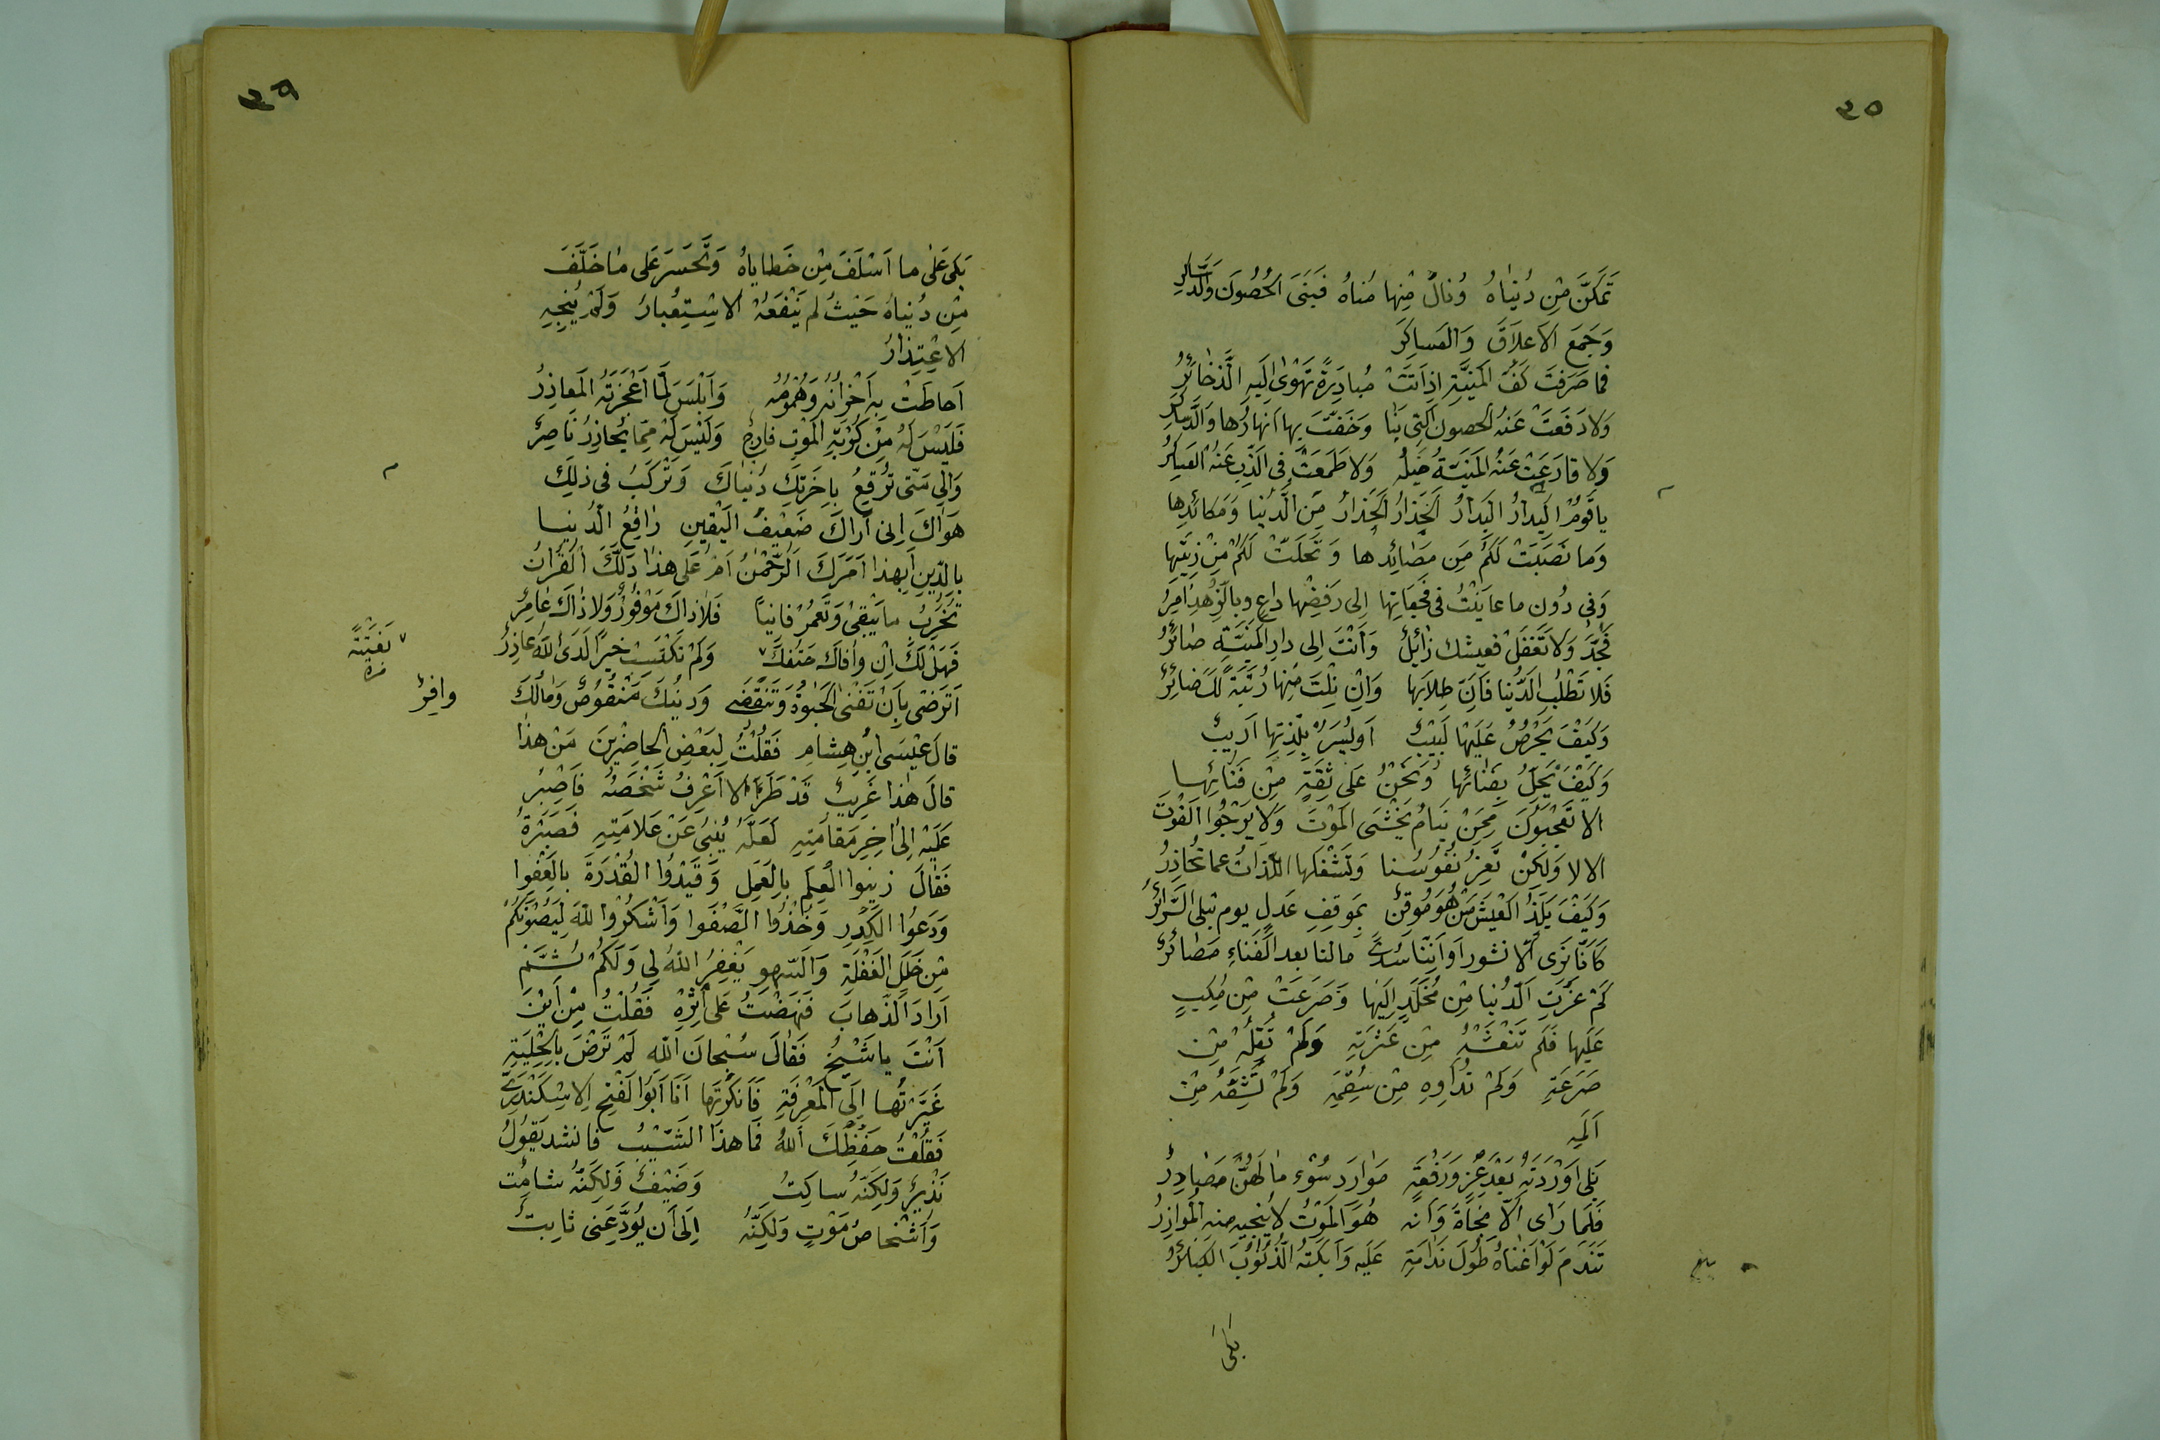 ٣٥
تَمَكَّنَ مِن دُنيَاهُ وَنالَ مِنها مُناهُ فَبَنَى الحُصُونَ وَالدَّساكِرِ
وَجَمَعَ الاَعلاَقَ وَالعَساكِرَ
فما صَرَفَت كَفَّ المَنيَّةِ اِذ اَتَتْ مُبادِرَةً تَهْوى اِلَيهِ الذَّخَائِرُ
وَلا دَفَعَتْ عَنهُ الحصونُ الَّتِى بَنا وَحَفَّتْ بِها اَنهارُها وَالدَّساكِرُ
وَلا قارَعَتْ عَنْهُ المَنيَّةَ خَيلُهُ وَلا طَمِعَتْ فِى الذَّبِّ عَنْهُ العَساكِرُ
يا قَومُ البِدارُ البِدارُ الحَذارُ الحَذارُ مِنَ الدُّنيا وَمَكائِدِها
وَما نَصَبَتْ لَكُمْ مِن مَصَائِدِها وَتَحَلَّتْ لَكُمْ مِنْ زِينَتِها
وَفِى دُونِ ما عايَنتَ فى فَجَعاتِها اِلى رَفْضِها داعٍ وبِالزُّهدِ اٰمِرُ
فَجِدَّ وَلا تَغفَل فعيشك زائِلٌ وَاَنتَ اِلى دارِ المَنِيَّةِ صائِرٌ
فَلا تَطْلُبِ الدُّنيا فَاِنَّ طِلابَها وَاِنْ نِلتَ مِنها رُتبَةً لَكَ ضائِرٌ
وَكَيْفَ يَحْرُصُ عَلَيْها لَبيْبٌ اَو يُسَرُّ بِلَذَّتِها اَديبٌ
وَكَيْفَ يَحِلُّ بِفَنائِها وَنَحْنُ عَلى ثِقَةٍ مِن فَنَائِها
الا تَعْجَبُونَ مِمَّنْ يَنامُ يَخْشَى المَوْتَ وَلا يَرْجُوا الفَوْتَ
الا لا وَلكِنْ نَغُرُّ نُفُوسَنا وَتَشْغَلُها اللّذاتُ عما نُحاذِرُ
وَكَيْفَ يَلَذُّ العَيْشَ مَنْ هُوَ مُوقِنٌ بِمَوقِفِ عَدلٍ يوم تبلى السَّرائِرُ
كَانّا نَرى اَلا نشور اَو اَنَّنا سُدًى مالنا بعد الفَناءِ مَصائِرُ
كَمْ غَرَّتِ الدُّنيا مِن مُخلَدٍ اِلَيها وَصَرَعَتْ مِن مُكِبٍّ
عَلَيها فَلَم تَنْعَشْهُ مِن عَثرَتِهِ وَلَمْ تُقِلْهُ مِن
صَرعَتِهِ وَلَمْ تُداوِهِ مِن سُقْمِهِ وَلَمْ تُشْفِهِ مِن
اَلَمِهِ
بَلى اَوْرَدَتهُ بَعْدَ عِزٍّ وَرَفْعَةٍ مَوارِدَ سُوْءٍ مٰا لَهُنَّ مَصادِرُ
فَلَما رَاى اَلا نَجاةَ وَاَنه هُوَ المَوْتُ لا يُنْجِيهِ مِنهِ المُوازِرُ
تَنَدَّمَ لَوْ اَغْناهُ طُولَ نَدامَةٍ عَلَيهِ وَاَبكَتهُ الذُّنُوبُ الكبَائِرُ
بَكىٰ
٣٦
بَكى عَلى ما اَسْلَفَ مِن خَطاياهُ وَتَحَسَّرَ عَلى ما خَلَّفَ
مِن دُنياهُ حَيْثُ لم يَنْفَعْهُ الاسْتِعْبارُ وَلَمْ يُنجِهِ
الاعْتِذارُ
اَحاطَتْ بِهِ اَحْزانُهُ وَهُمُومُهُ وَاَبْلَسَ لَمّا اَعْجَزَتهُ المَعاذِرُ
فَلَيْسَ لَهُ مِنْ كُرْبَةِ المَوْتِ فارِجٌ وَلَيْسَ لَهُ مِمّا يُحاذِرُ نَاصِرٌ
وَاِلى مَتى تُرَقِعُ بِاٰخِرَتِكَ دُنياكَ وَتَركَبُ فى ذلِكَ
هَواكَ اِنى اَراكَ ضَعيفَ اليَقينِ رٰاقِعُ الدُّنيا
بِالدِّينِ اَبِهذا اَمَرَكَ الرَّحْمٰنُ اَم عَلى هذا دَلَّكَ القُرانُ
تُخَرِّبُ ما يَبْقى وَتَعمُرُ فانياً فَلاٰ ذاكَ مَوْفُورٌ وَلا ذاكَ عامِرٌ
فَهَلْ لَكَ اِن وافاكَ حَتفُكَ وَلَم تَكْتَسِب خيراً لَدَى اللهِ عاذِرُ
بَغْتَةً
اَتَرضى بِاَن تَفْنى الحَيٰوةُ وَتَنقَضى وَدينُكَ مَنْقُوصٌ وَمالُكَ
وافِرٌ
قالَ عيْسَى ابْنُ هِشامٍ فَقُلْتُ لِبَعْضِ الحاضِرينَ مَن هذا
قالَ هذا غَريبٌ قَدْ طَرَءَ لا اَعْرِفُ شَخْصَهُ فَاصْبِرْ
عَلَيْهِ اِلى اٰخِرِ مَقامَتِهِ لَعَلَّهُ يُنْبِئُ عَنْ عَلامَتِهِ فَصَبَرْتُ
فَقالَ زينوا العِلمَ بِالعَمَلِ وَقَيِّدُوا القُدْرَةَ بِالعَفْوِا
وَدَعُوا الكَدَرَ وَخُذُوا الصَّفْوَا وَاَشْكَرُوا للهَ لِيَصُوْنَكُمْ
مِن خَلَلِ الغَفْلَةِ وَالسّهو يَغْفِرُ اللهُ لِى وَلَكُمْ ثُمَّ
اَرادَ الذَّهابَ فَنَهَضْتُ عَلى اَثَرِهِ فَقُلْتُ مِن اَيْنَ
اَنْتَ يا شَيْخُ فَقالَ سُبْحانَ اللهِ لَمْ تَرْضَ بِالحِلْيَةِ
غَيَّرْتُها اِلَى المَعْرِفَةِ فَاَنكَرْتَها اَنَا اَبُوا لفَتْحِ الاسْكَنْدَرِىُّ
فَقُلْتُ حَفِظَكَ اللهُ فَما هذا الشَّيْبُ فانشد يَقُولُ
نَذيرٌ وَلكِنَّهُ ساكِتٌ وَضَيْفٌ وَلكِنَّهُ شامِت
وَاَشْخاصُ مَوْتٍ وَلكِنَّهُ اِلَى اَن يُوَدِّعَنى ثابِتٌ